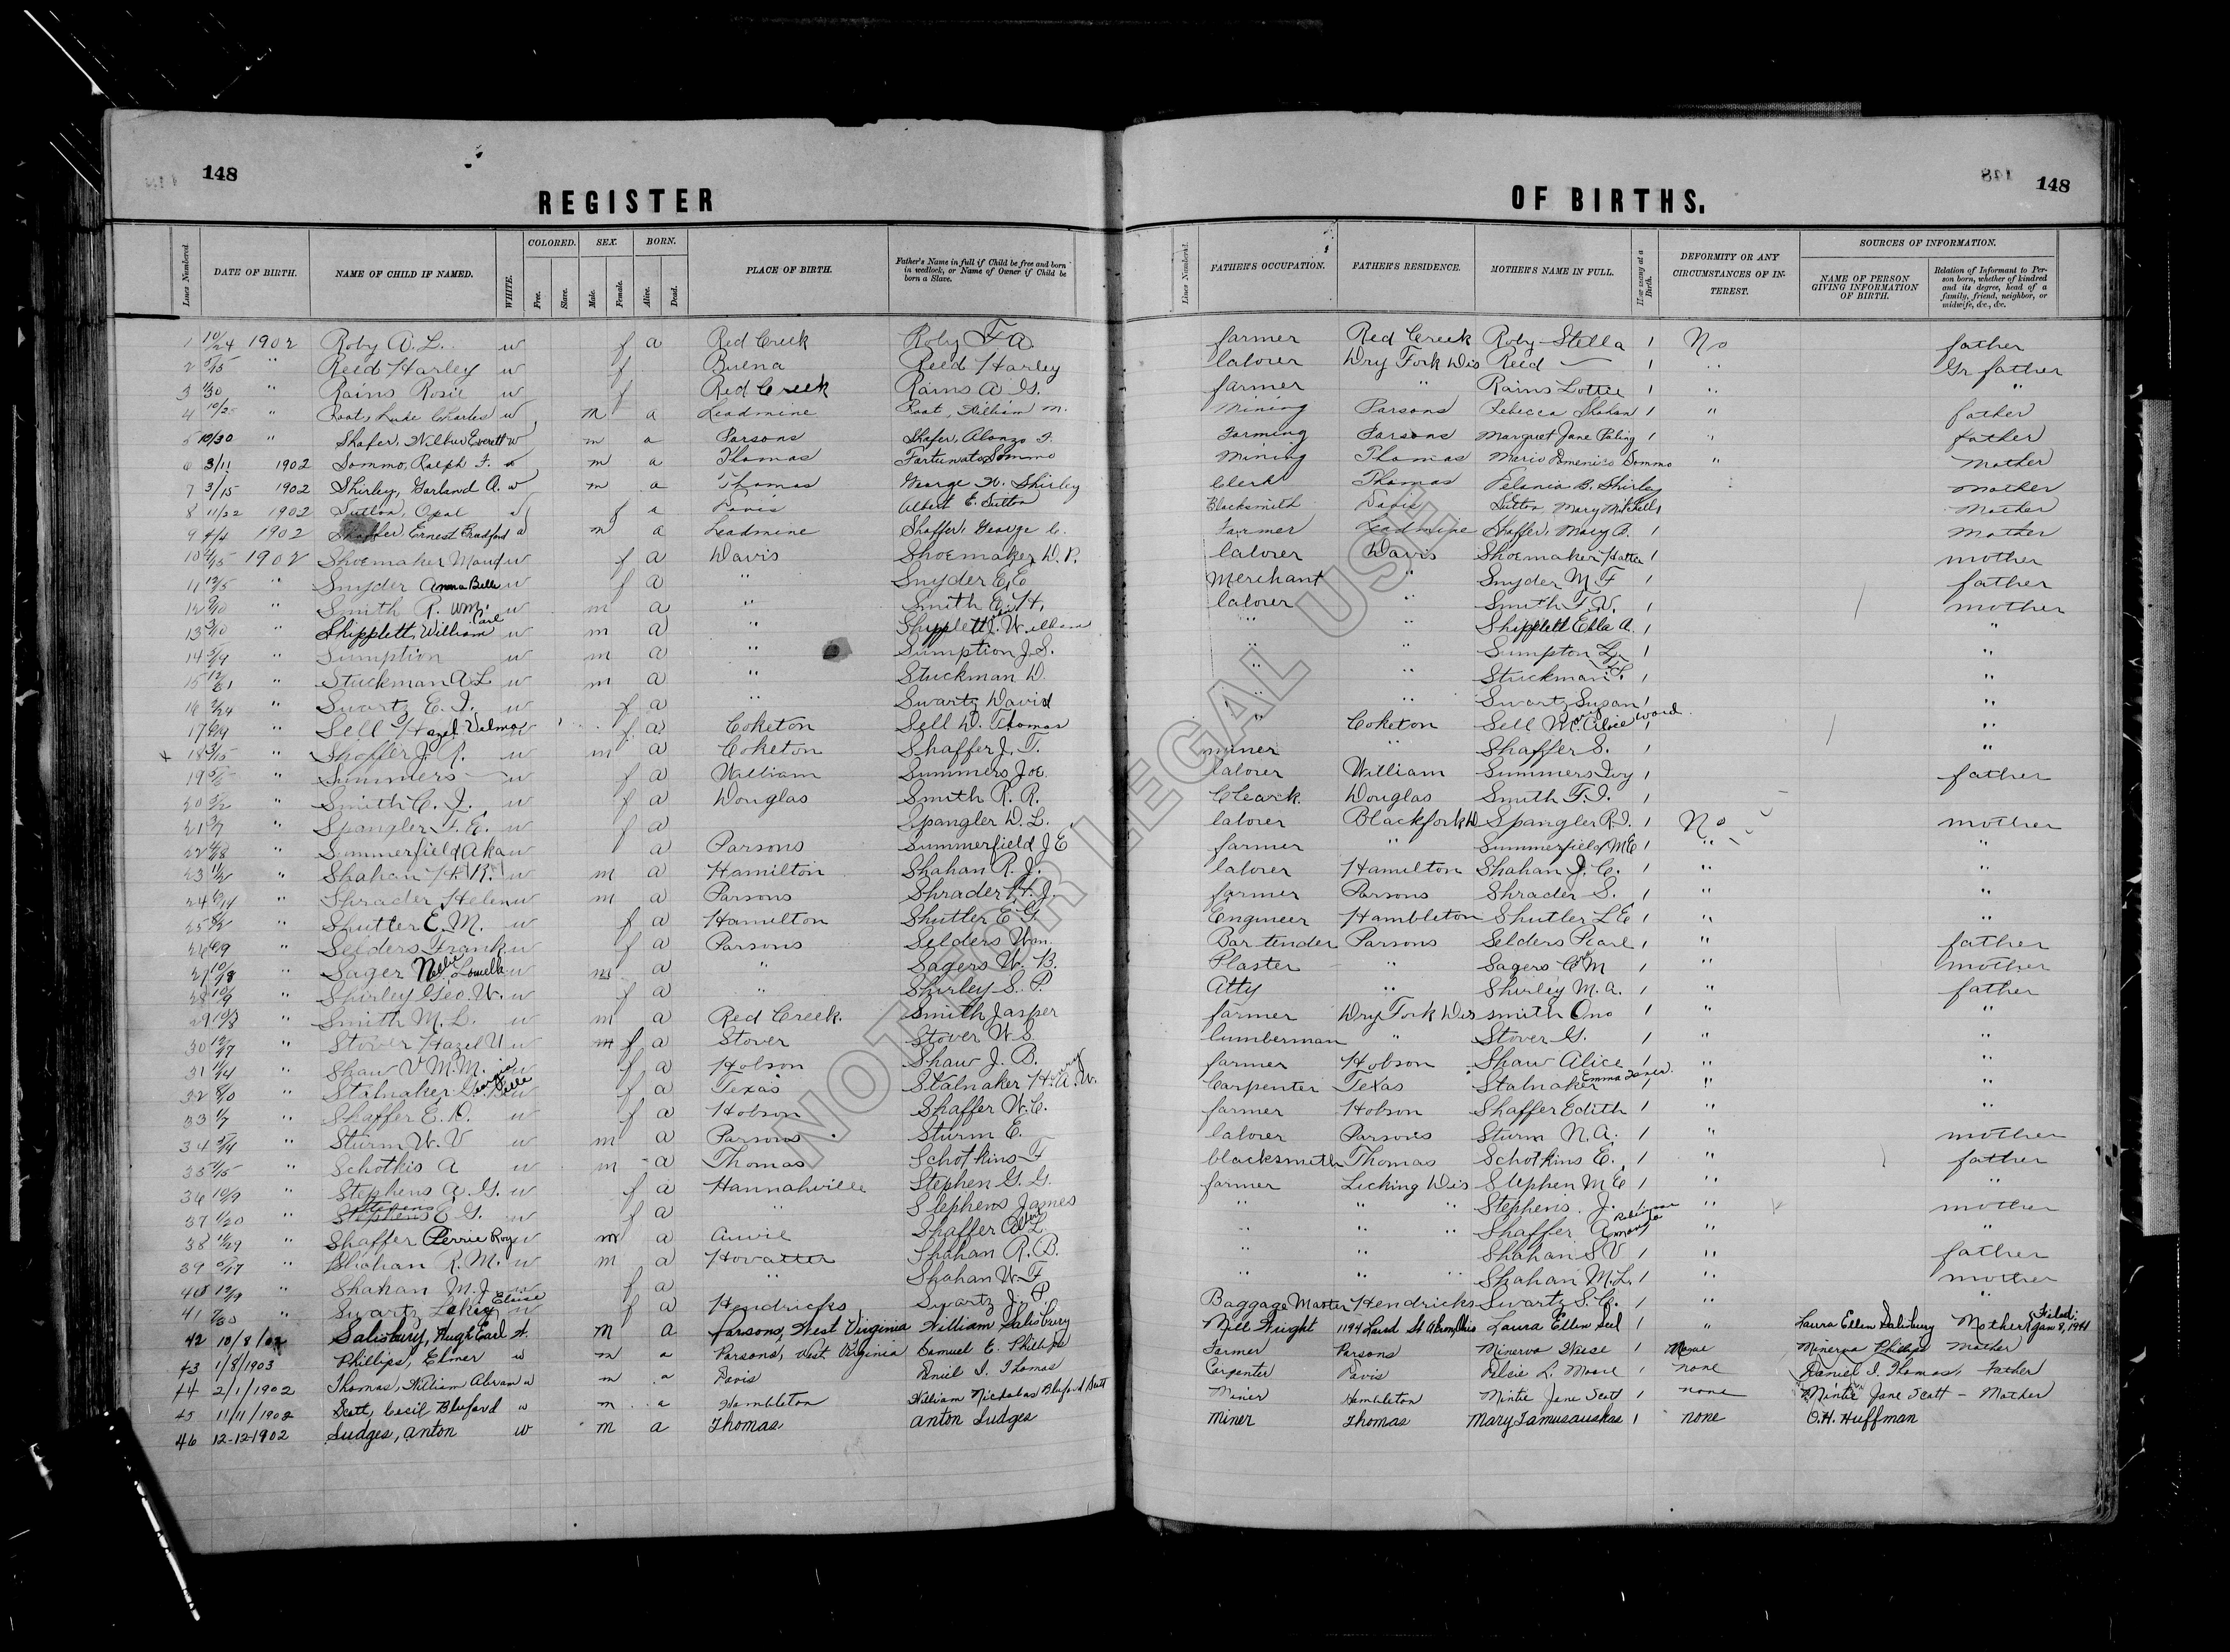 148
148
REGISTER
OF BIRTHS.
148
148
Lines Numbered
DATE OF BIRTH.
NAME OF CHILD IF NAMED.
WHITE.
COLORED.
Free.
Slave.
SEX.
Male.
Female.
BORN.
Alive.
Dead.
PLACE OF BIRTH.
Father's Name in full if Child be free and born in wedlock, or Name of Owner if Child be born a Slave.
Lines Numbered.
FATHER'S OCCUPATION.
FATHER'S RESIDENCE.
MOTHER'S NAME IN FULL.
How many at a Birth.
DEFORMITY OR ANY CIRCUMSTANCES OF INTEREST.
SOURCES OF INFORMATION.
NAME OF PERSON GIVING INFORMATION OF BIRTH.
Relation of Informant to Person born, whether of kindred and its degree, head of a family, friend, neighbor, or midwife, &c., &c.
1 10/24 1902 Roby A. L. w f a Red Creek Roby F A. farmer Red Creek Roby Stella 1 No father
2 " Reed Harley w f Buena Reed Harley laborer Dry Fork Dis Reed — 1 " Gr father
3 " Rains Rosie w f Red Creek Rains A. G. farmer " Rains Lottie 1 " "
4 " Root, Luke Charles w m a Leadmine Root, William M. Mining Parsons Rebecca Shahan 1 " father
5 10/30 " Shafer, Wilbur Everett w m a Parsons Shafer, Alonzo F. Farming Parsons Margaret Jane Poling 1 " father
6 3/11 1902 Sommo, Ralph F. w m a Thomas Fortunato Sommo Mining Thomas Maria Domenico Sommo " Mother
7 3/15 1902 Shirley, Garland A. w m a Thomas George W. Shirley Clerk Thomas B. Shirley Mother
8 11/22 1902 Sutton, Opal w f a Davis Albert E. Sutton Blacksmith Davis Sutton, Mary Mitchell 1 Mother
9 4/4 1902 Shaffer, Ernest Bradford w m a Leadmine Shaffer, George C. Farmer Leadmine Shaffer, Mary A. 1 Mother
10 1902 Shoemaker Maud w f a Davis Shoemaker W. R. laborer Davis Shoemaker Hattie 1 mother
11 12/5 " Snyder Anna Belle w f a " Snyder E. E Merchant " Snyder M F 1 father
12 " Smith R. Wm. w m a " Smith H. laborer " Smith F. V. 1 mother
13 " Shipplett, William Carl w m a " Shipplett William " " Shipplett Ella A. 1 "
14 " Sumption w m a " Sumption J. S. " " Sumpton 1 "
15 " Stuckman A L w m a " Stuckman W. " " Stuckman 1 "
16 " Swartz E. I. w f a " Swartz David " " Swartz Susan 1 "
17 " Sell Hazel Velma w f a Coketon Sell W. Thomas " Coketon Sell Alice Ward 1 "
18 3/15 " Shaffer J. R. w m a Coketon Shaffer J. T. miner " Shaffer S. 1 "
19 " Summers w f a William Summers Joe laborer William Summers Ivy 1 father
20 " Smith C. J. w f a Douglas Smith R. R. Cleark Douglas Smith F. I. 1
21 3/7 " Spangler F. E. w f a Spangler W. L. laborer Blackfork D Spangler R. I. 1 No mother
22 " Summerfield Aka w a Parsons Summerfield J E farmer " Summerfield M E 1 " "
23 " Shahan H. R. w m a Hamilton Shahan R. J. laborer Hamilton Shahan J. C. 1 " "
24 " Shrader Helen w m a Parsons Shrader H. J. farmer Parsons Shrader S. 1 " "
25 " Shutler E. M. w f a Hamilton Shutler E G Engineer Hambleton Shutler L E 1 " "
26 " Selders Frank w f a Parsons Selders Wm. Bar tender Parsons Selders Pearl 1 " father
27 " Sager Nellie Louella w m a " Sagers W. B. Plaster " Sagers C M 1 " mother
28 10/9 " Shirley Geo. W. w f a " Shirley S. P. Atty " Shirley M. A. 1 " father
29 " Smith M. L. w m a Red Creek. Smith Jasper farmer Dry Fork Dis smith Ono 1 " "
30 12/17 " Stover Hazel U w f a Stover Stover W S. lumberman " Stover G. 1 " "
31 " Shaw V. M. M. w f a Hobson Shaw J. B. farmer Hobson Shaw Alice 1 " "
32 " Stalnaker Georgia Belle w f a Texas Stalnaker H. A. W. Carpenter Texas Stalnaker Emma 1 " "
33 1/7 " Shaffer E. D. w f a Hobson Shaffer W. C. farmer Hobson Shaffer Edith 1 " "
34 " Sturm W. V w m a Parsons Sturm E. laborer Parsons Sturm N. A. 1 " mother
35 " Schotkis A w m a Thomas Schotkins F blacksmith Thomas Schotkins E. 1 " father
36 10/9 " Stephens A. G. w f a Hannahville Stephen G. G. farmer Licking Dis Stephen M E 1 " "
37 1/20 " Stephens E G. w f a " Stephens James " " " Stephens J. 1 " mother
38 11/29 " Shaffer Perrie Roy w m a Auvil Shaffer L. " " " Shaffer Amanda Robinson " "
39 " Shahan R. M. w m a Hovatter Shahan R. B. " " Shahan S V 1 " father
40 " Shahan M. J. w f a " Shahan W. F " " " Shahan M. L. 1 " mother
41 " Swartz Eloise w f a Hendricks Swartz J. P Baggage Master Hendricks Swartz S. C. 1 " "
42 10/8/02 Salisbury, Hugh Earl W. M a Parsons, West Virginia William Salisbury Mill Wright 1194 Laird St Akron, Ohio Laura Ellen Seel 1 " Laura Ellen Salisbury Mother Filed: Jan 8, 1941
43 1/8/1903 Phillips, Elmer w m a Parsons, West Virginia Samuel E. Phillips Farmer Parsons Minerva Wease 1 None Minerva Phillips Mother
44 2/1/1902 Thomas, William Abram w m a Davis Daniel I. Thomas Carpenter Davis Delsie L. Moore 1 none Daniel I. Thomas, Father
45 11/11/1902 Scott, Cecil Bluford w m a Hambleton William Nicholas Bluford Scott Miner Hambleton Mintie Jane Scott 1 none Mintie Jane Scott - Mother
46 12-12-1902 Sudges, Anton w m a Thomas Anton Sudges Miner Thomas Mary Tamusauskas 1 none O.H. Huffman
NOT FOR LEGAL USE